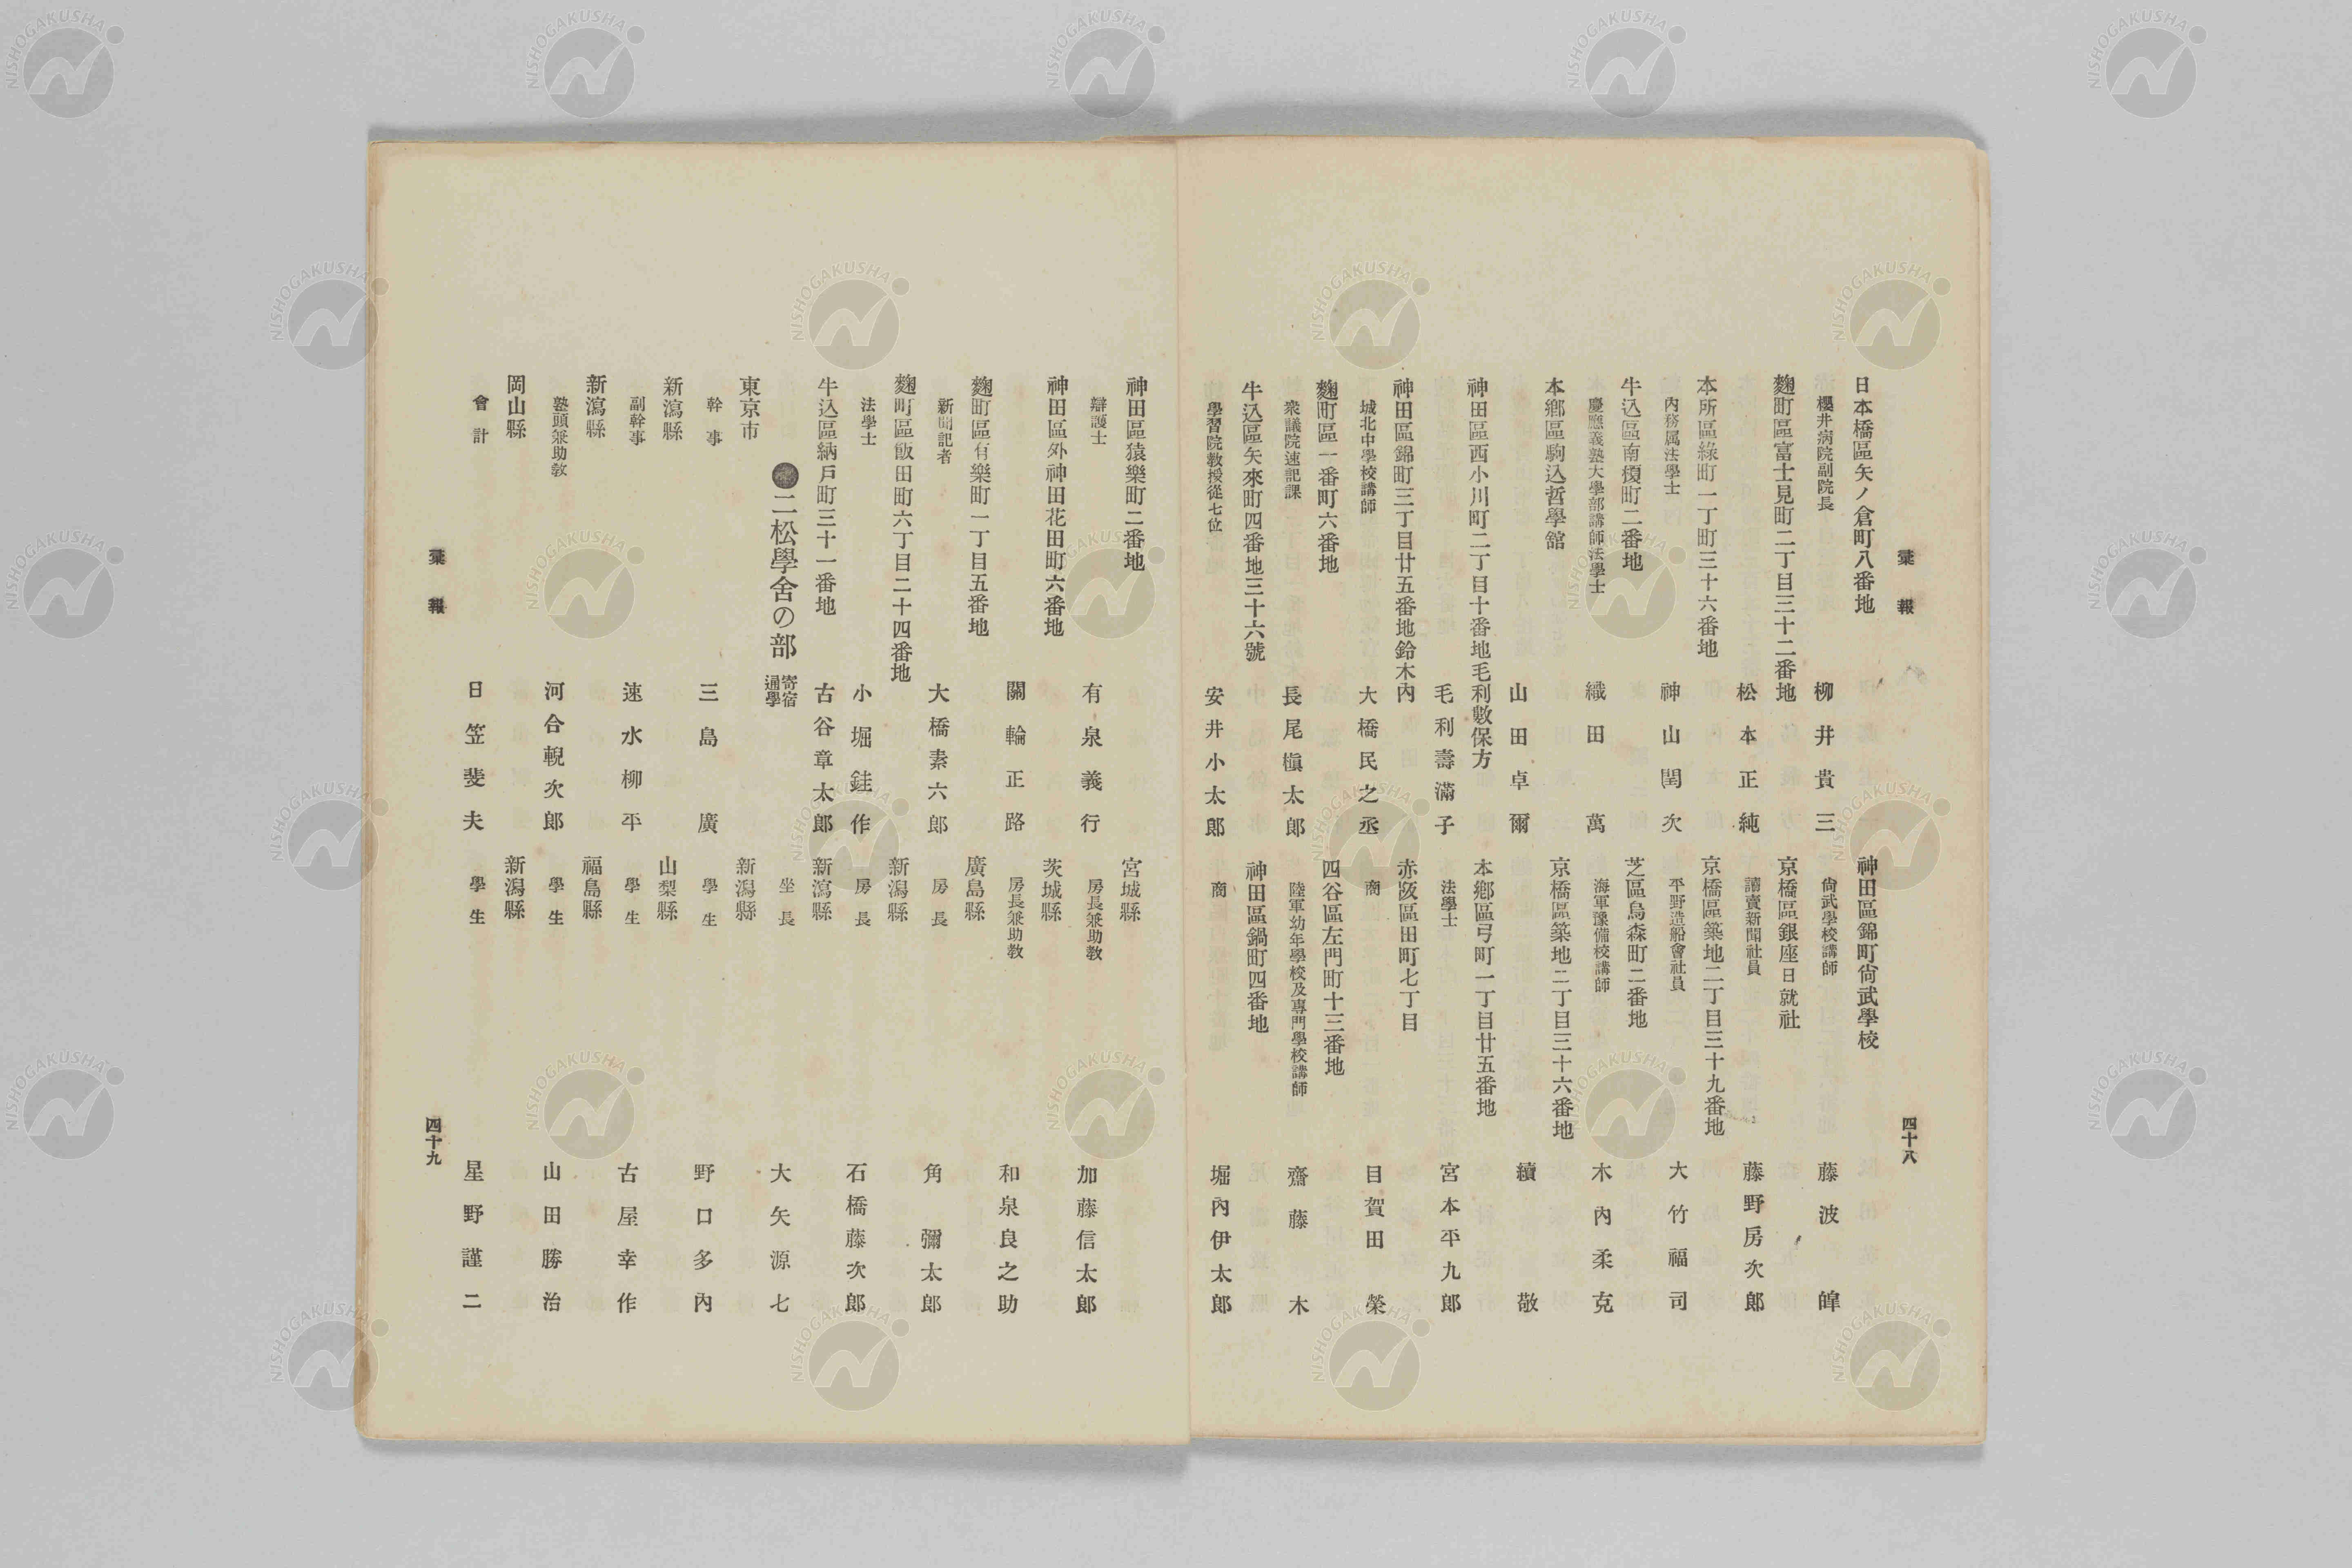 彙報
四十八
日本橋區矢ノ倉町八番地
櫻井病院副院長
柳井貴三
麴町區富士見町二丁目三十二番地
松本正純
本所區綠町一丁町三十六番地
內務属法學士
神山閏次
牛込區南榎町二番地
慶應義塾大學部講師法學士
織田萬
本鄕區駒込哲學舘
山田卓爾
神田區西小川町二丁目十番地毛利數保方
毛利壽滿子
神田區錦町三丁目廿五番地鈴木內
城北中學校講師
大橋民之丞
麴町區一番町六番地
衆議院速記課
長尾槇太郎
牛込區矢來町四番地三十六號
學習院敎授從七位
安井小太郎
神田區錦町尙武學校
尙武學校講師
藤波皡
京橋區銀座日就社
讀賣新聞社員
藤野房次郎
京橋區築地二丁目三十九番地
平野造船會社員
大竹福司
芝區烏森町二番地
海軍豫備校講師
木內柔克
京橋區築地二丁目三十六番地
續敬
本鄕區弓町一丁目廿五番地
法學士
宮本平九郎
赤阪區田町七丁目
商
目賀田榮
四谷區左門町十三番地
陸軍幼年學校及專門學校講師
齋藤木
神田區鍋町四番地
商
堀內伊太郎
神田區猿樂町二番地
辯護士
有泉義行
神田區外神田花田町六番地
關輪正路
麴町區有樂町一丁目五番地
新聞記者
大橋素六郎
麴町區飯田町六丁目二十四番地
法學士
小堀銈作
牛込區納戶町三十一番地
古谷章太郎
宮城縣
房長兼助敎
加藤信太郎
茨城縣
房長兼助敎
和泉良之助
廣島縣
房長
角彌太郎
新潟縣
房長
石橋藤次郎
新瀉縣
坐長
大矢源七
●二松學舍の部 寄宿通學
東京市
幹事
三島廣
新瀉縣
副幹事
速水柳平
新瀉縣
塾頭兼助敎
河合輗次郎
岡山縣
會計
日笠斐夫
新潟縣
學生
野口多內
山梨縣
學生
古屋幸作
福島縣
學生
山田勝治
新潟縣
學生
星野謹二
彙報
四十九
NISHOGAKUSHA